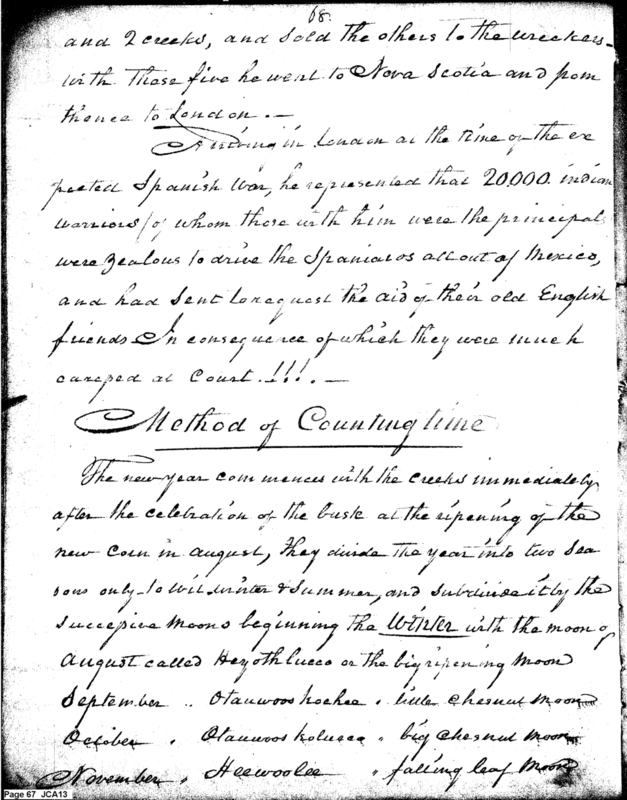 68.
and 2 creeks, and sold the others to the wreckers
with those five he went to Nova Scotia and from
thence to London. —
Arriving in London at the time of the ex
pected Spanish War, he represented that 20,000 indian
warriors (of whom those with him were the principals
were zealous to drive the Spaniards all out of Mexico,
and had sent to request the aid of their old English
friends In consequence of which they were much
caressed at Court.!!!. —
Method of Counting time
The new year commences with the creeks immediately
after the celebration of the busk at the ripening of the
new corn in august, They divide the year into two Sea
sons only to wit winter & Summer, and subdivide it by the
successive Moons beginning the Winter with the moon of
August called Heyothlucco or the big ripening Moon
September .. Otauwooskochee . little Chesnut Moon
October . Otauwooskolucco " big Chesnut Moon
November . Heewoolee " falling leaf Moon
Page 67 JCA13